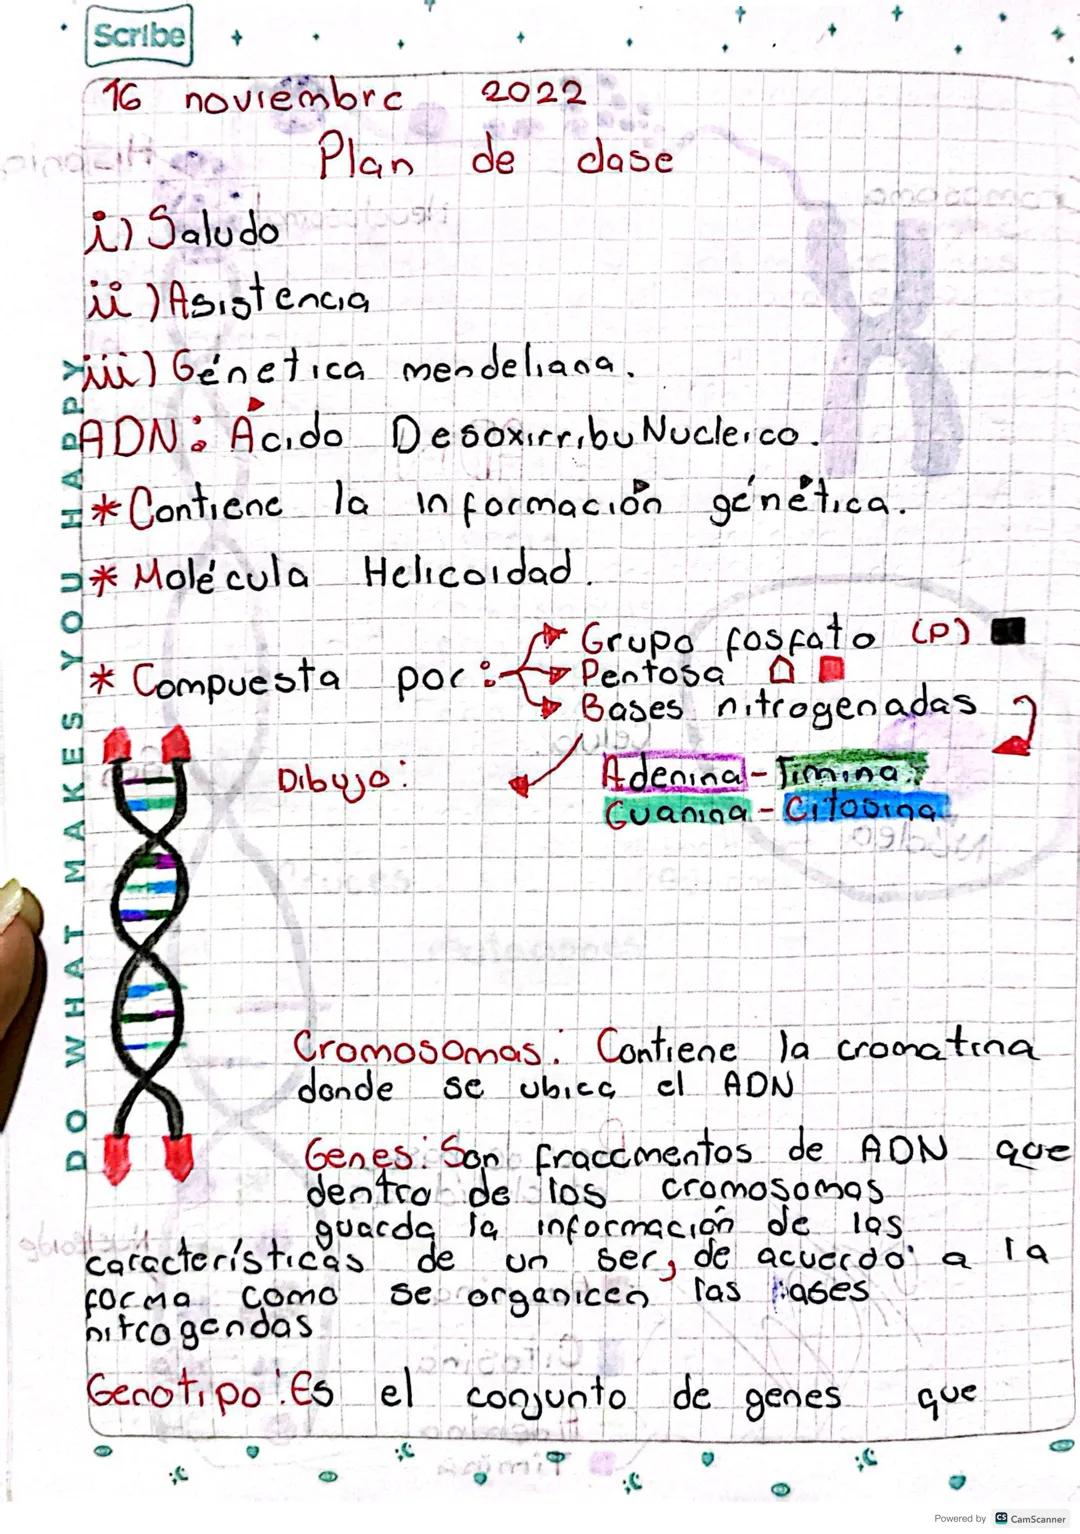 Scribe
16 noviembre 2022
Plan de clase
i) Saludo
ii) Asistencia
iii) Génetica mendeliana.
ADN: Ácido DesoxirribuNucleico.
* Contiene la información génética.
* Molécula Helicoidad.
* Compuesta por:
Grupo fosfato (P)
Pentosa
Bases nitrogenadas
Dibujo:
Adenina - Timina.
Guanina - Citosina
Cromosomas: Contiene la cromatina
donde se ubica el ADN
Genes: Son fraccmentos de ADN que
dentro de los cromosomas
guarda la información de las
características de un ser, de acuerdo a la
forma como se organicen las bases
nitrogendas
Genotipo: Es el conjunto de genes que
DO WHAT MAKES YOU HAPPY
Powered by CS CamScanner